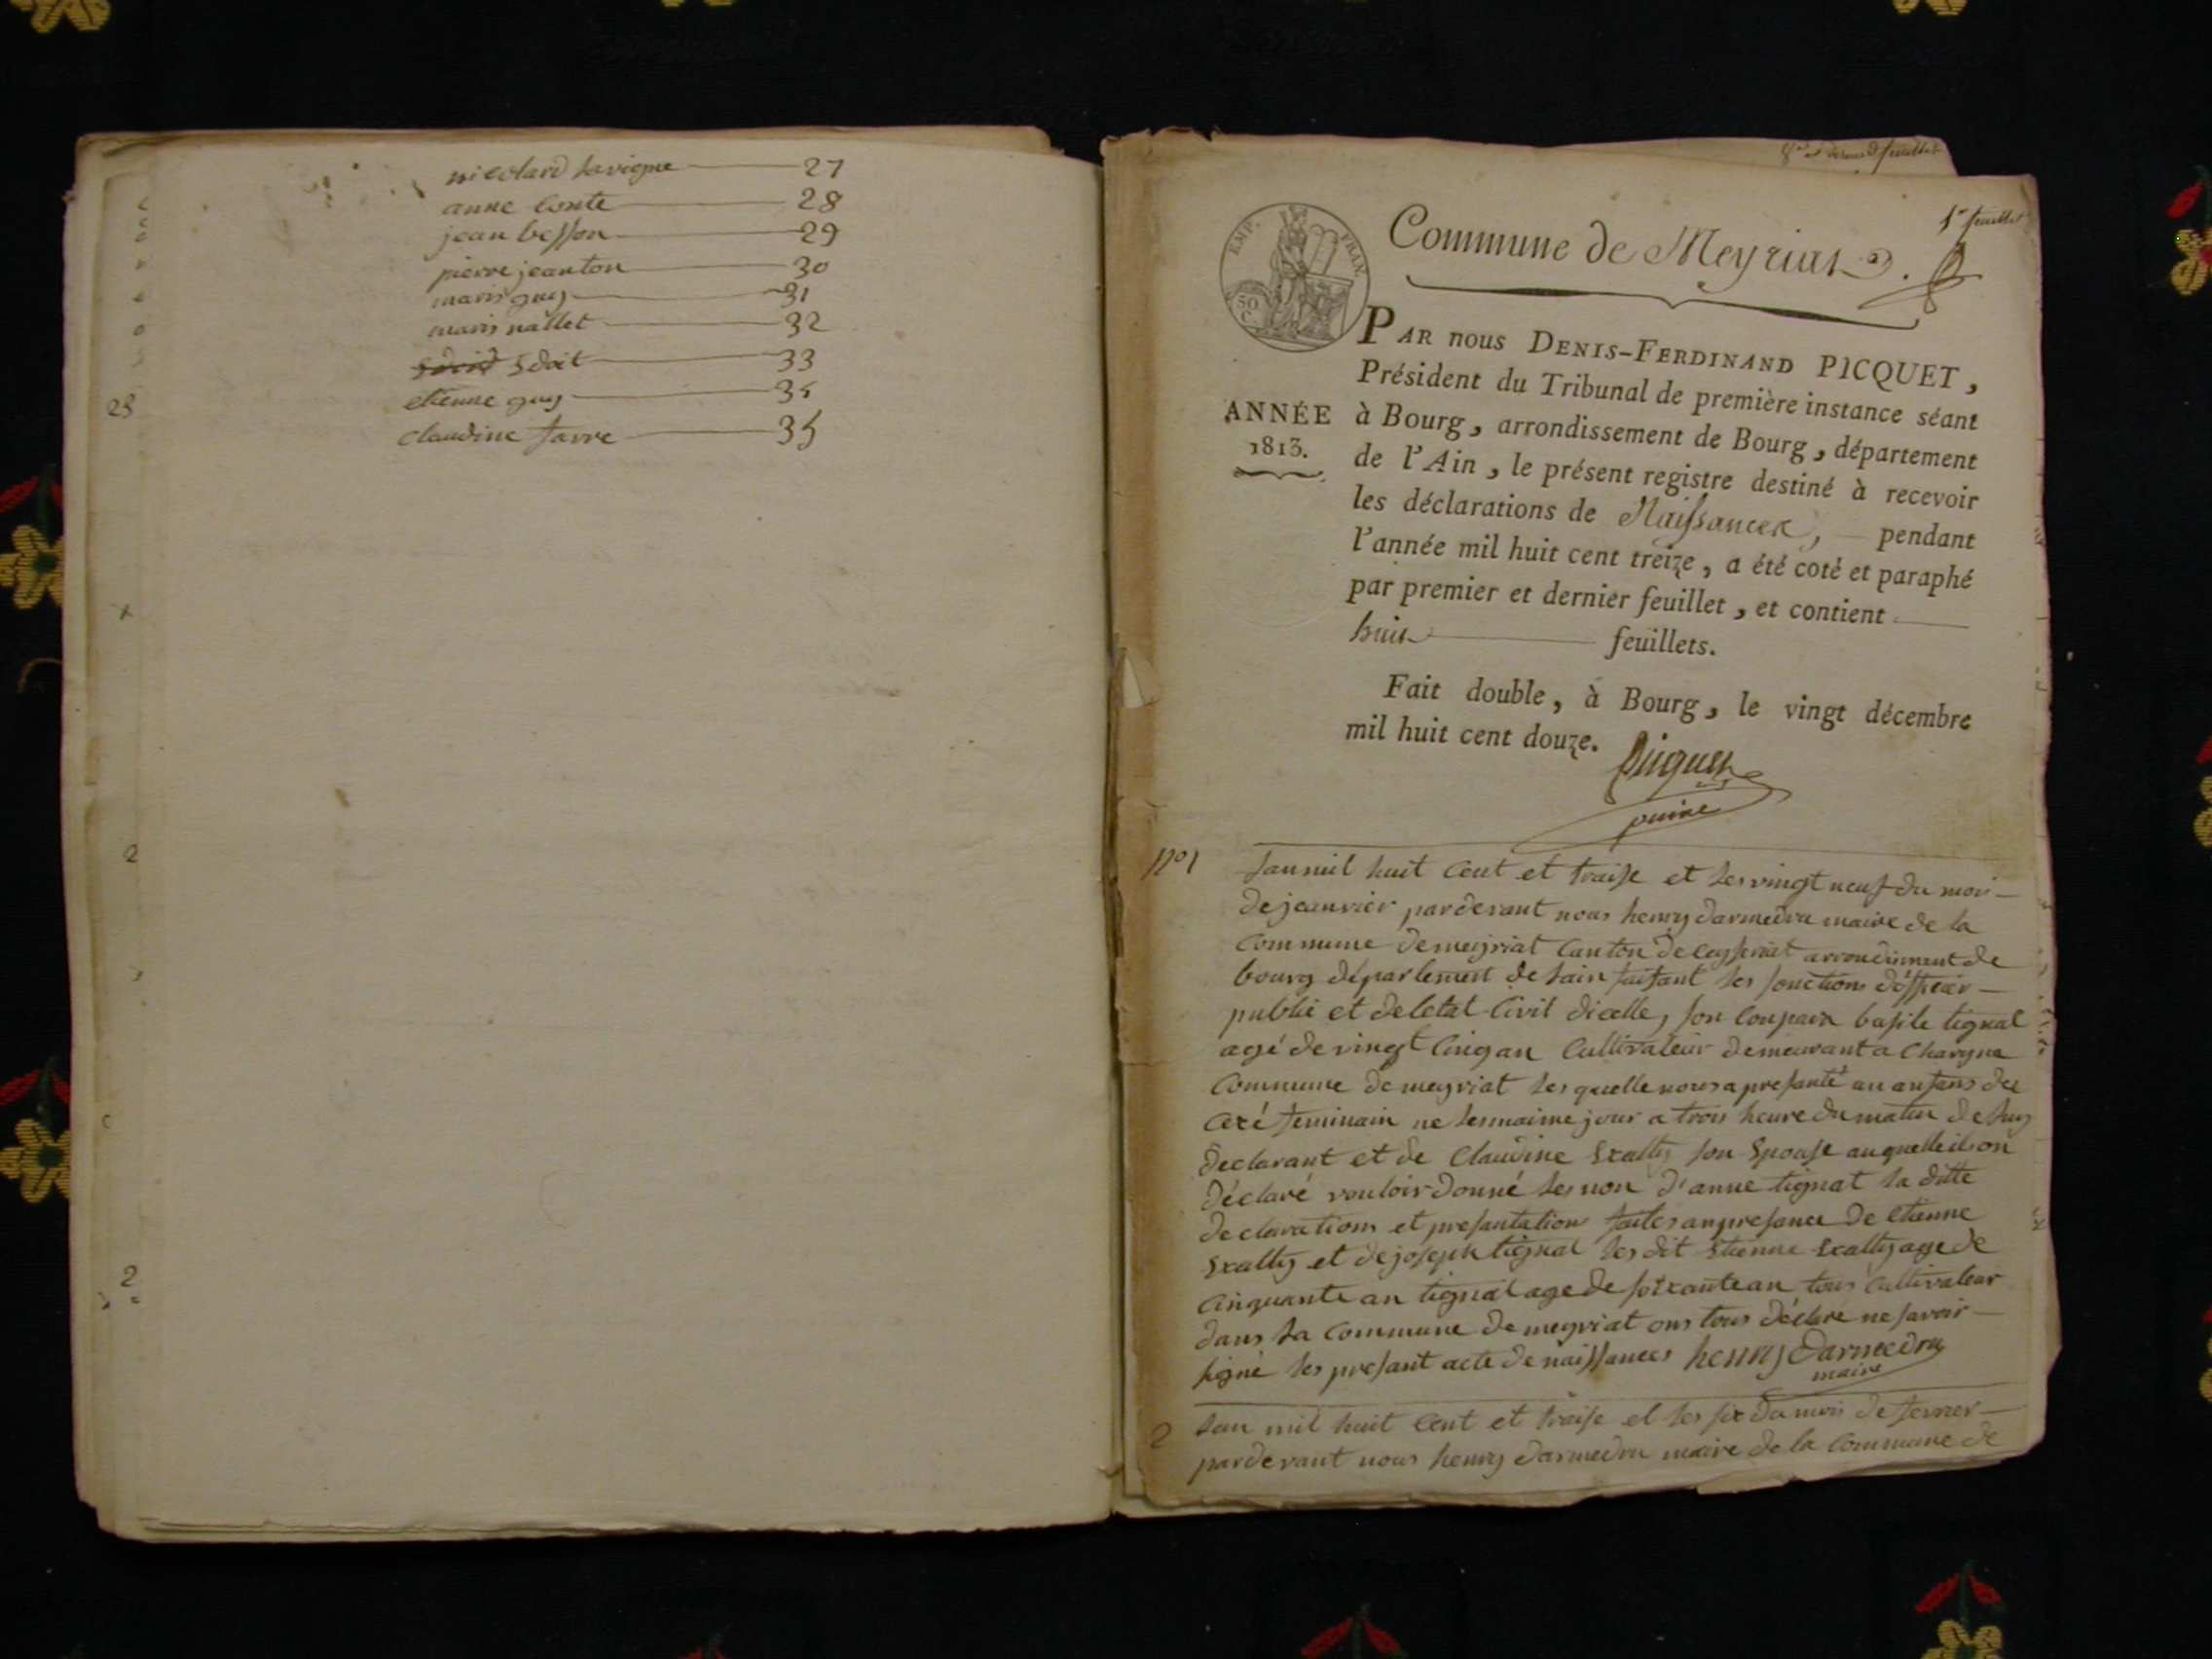 nicolard lavigne 27
anne Conte 28
jean besson 29
pierre jeanton 30
marie guy 31
marie nallet 32
Sdoit 33
etienne guy 34
claudine favre 35
23
2
2
8me et dernier feuillet
1er feuillet
Commune de Meyriat
EMP. FRAN.
50 C.
PAR nous DENIS-FERDINAND PICQUET,
Président du Tribunal de première instance séant
ANNÉE à Bourg, arrondissement de Bourg, département
1813. de l'Ain, le présent registre destiné à recevoir
les déclarations de Naissances, pendant
l'année mil huit cent treize, a été coté et paraphé
par premier et dernier feuillet, et contient
huit feuillets.
Fait double, à Bourg, le vingt décembre
mil huit cent douze.
Picquet
no 1 Lan mil huit Cent et traise et les vingt neuf du mois
de jeanvier pardevant nous henry darmedru maire de la
Commune de meyriat Canton de Ceyseriat arrondinment de
bourg département de lain faisant les fonctions dofficier
publie et deletat Civil dicelle, son Conparu basile tignat
agé de vingt Cinq an Cultivateur demeurant a Charyna
Commune de meyriat les quelle nous a presanté un anfans du
cexé feminain ne lesmaime jour a trois heure du matin de luy
declarant et de Claudine Exally son Epouse auquelle ils on
déclaré vouloir donné les non d'anne tignat la ditte
declarations et presantation faites an presance de Etienne
Exally et de joseph tignat les dit Etienne Exally age de
Cinquante an tignat age de soixante an tous Cultivateur
dans la Commune de meyriat ons tous déclaré ne savoir
signé les presant acte de naissances henry Darmedru
maire
2 Lan mil huit Cent et traise et les six du mois de fevrier
pardevant nous henry darmedru maire de la Commune de